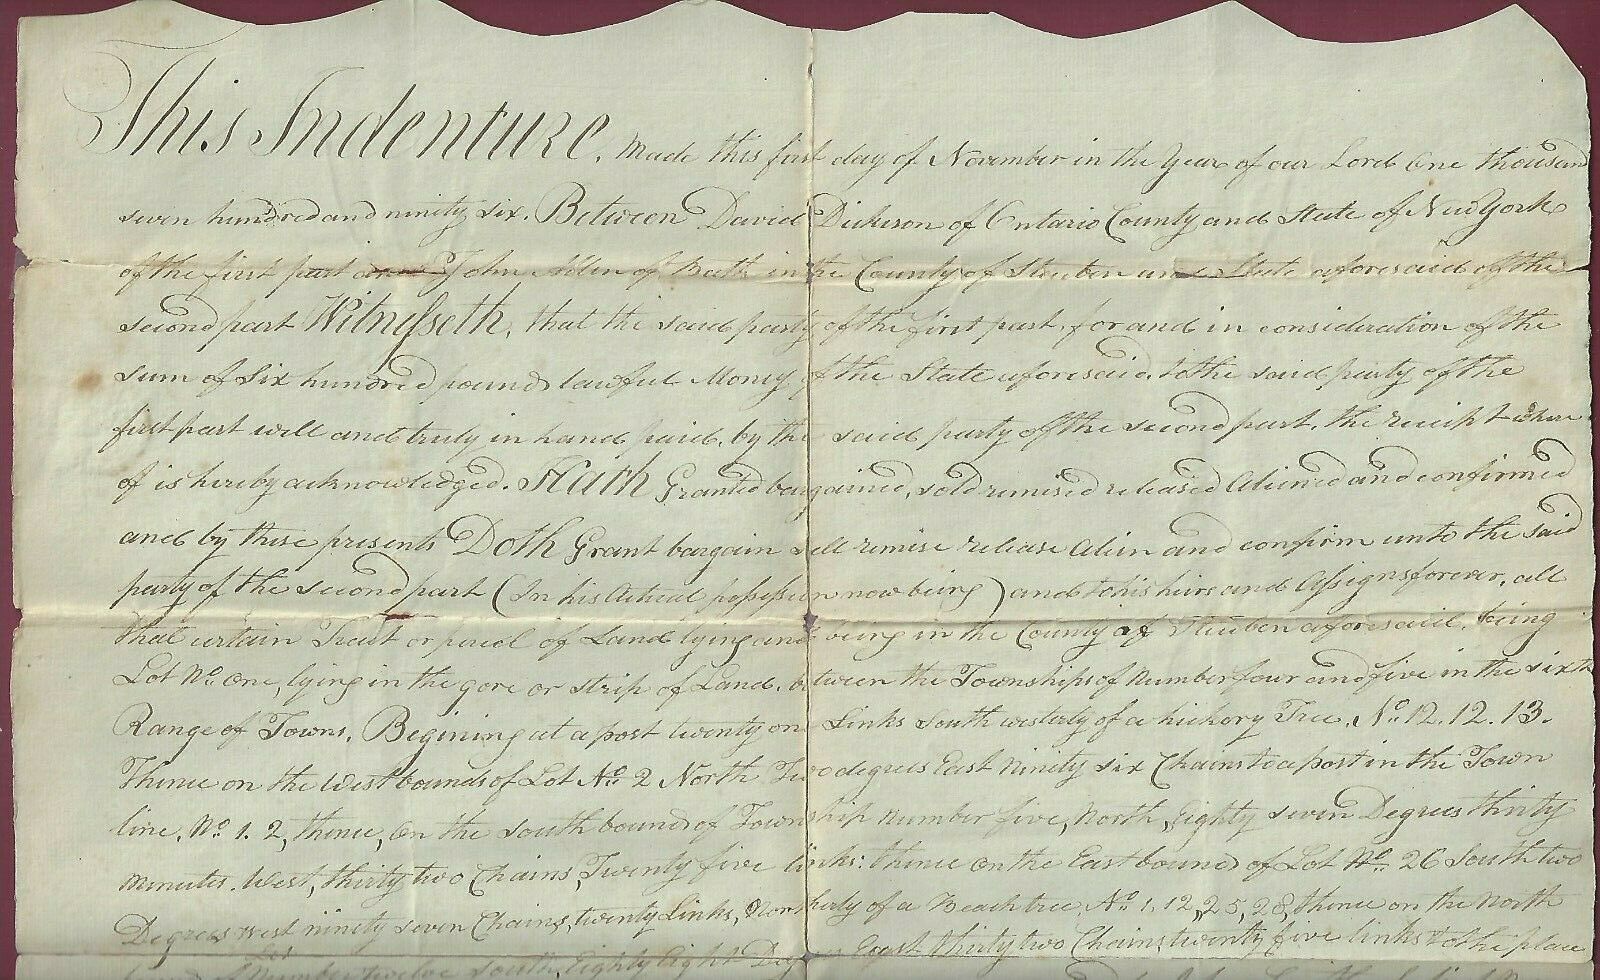 This Indenture, Made this first day of November in the Year of our Lord One thousand
seven hundred and ninity six. Between David Dickerson of Ontario County and State of New York
of the first part and John Alden of Bath in the County of Steuben and State aforesaid of the
second part Witnesseth, that the said party of the first part, for and in consideration of the
sum of Six hundred pounds lawful Money of the State aforesaid, to the said party of the
first part well and truly in hand paid, by the said party of the second part, the receipt where
of is hereby acknowledged. Hath Granted bargained, sold remised released Aliened and confirmed
and by these presents Doth Grant bargain sell remise release Alien and confirm unto the said
party of the second part (In his Actual possession now being) and to his heirs and Assigns forever, all
that certain Tract or parcel of Land lying and being in the County of Steuben aforesaid, being
Lot No. One, lying in the gore or strip of Land, between the Townships of Number four and five in the sixth
Range of Towns. Begining at a post twenty one Links South westerly of a hickory Tree, No. 12. 12. 13.
Thence on the West bounds of Lot No. 2 North Two degrees East Ninety six Chains to a post in the Town
line, No. 1. 2, thence, on the south bound of Township Number five, North, Eighty seven Degrees thirty
Minutes West, thirty two Chains, Twenty five Links: thence on the East bounds of Lot No. 26 South two
Degrees West ninety seven Chains, twenty Links, Northerly of a Beach tree, No. 1, 12, 25, 28, thence on the North
Lot Number twelve south, Eighty Eight Degrees East thirty two Chains twenty five links to the place